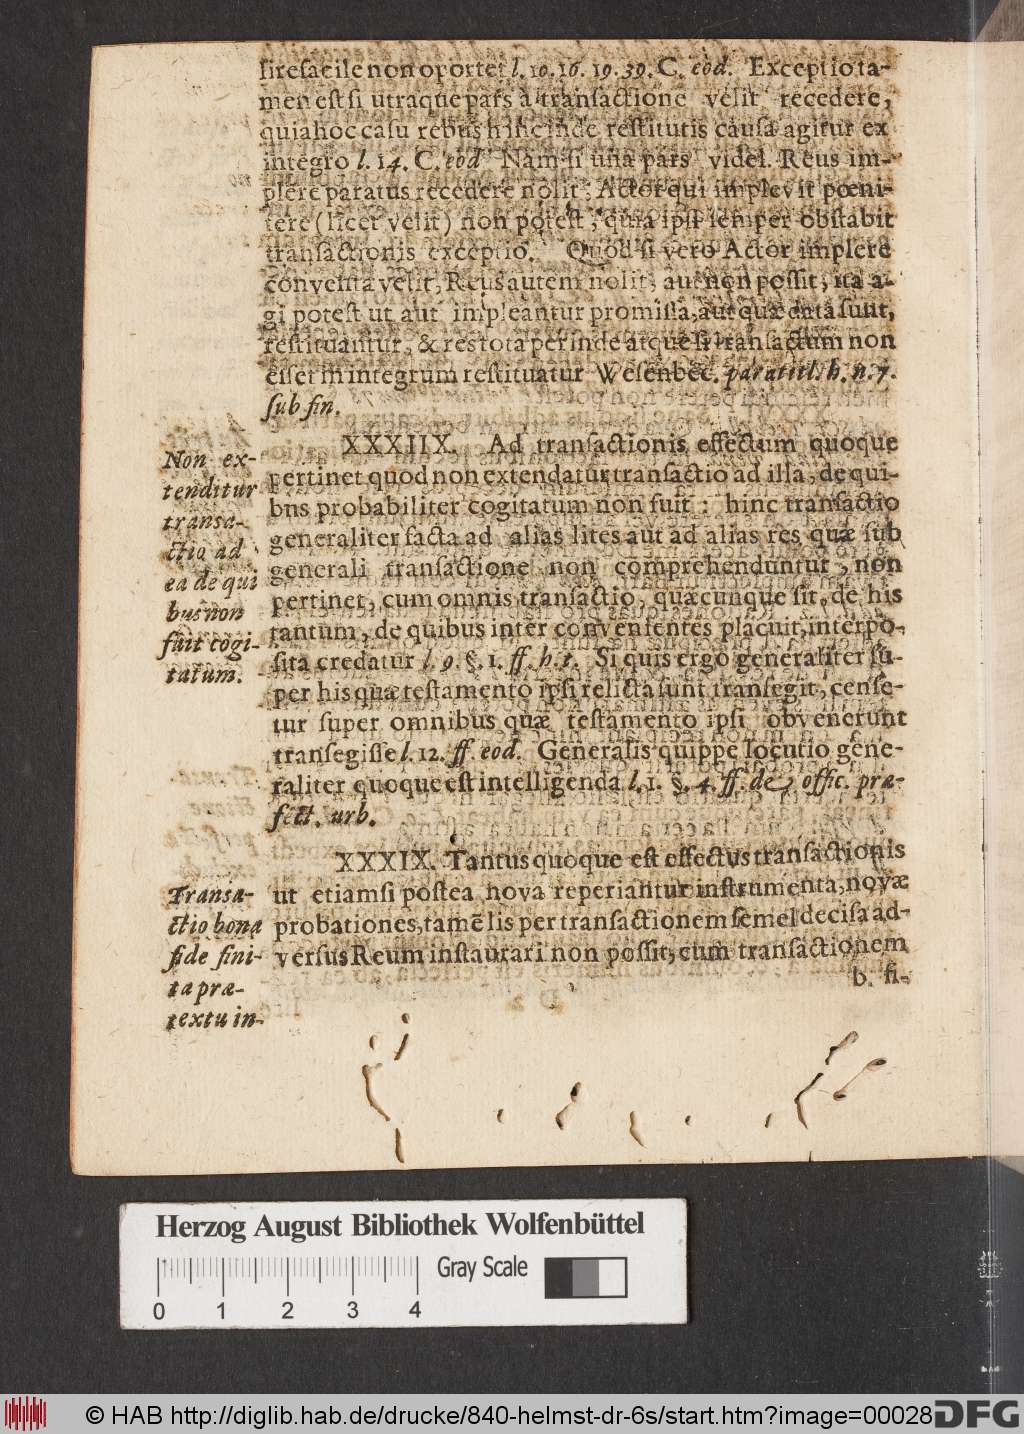 sirefacile non oportet l. 10. 16. 19. 39. C. eod. Exceptio ta-
men est si utraque pars à transactione velit recedere,
quia hoc casu rebus hinc inde restitutis causa agitur ex
integro l. 14. C. eod Nam si una pars videl. Reus im-
plere paratus recedere nolit, Actor qui implevit pœni-
tere (licet velit) non potest, quia ipsi semper obstabit
transactionis exceptio. Quod si vero Actor implere
conventa velit, Reus autem nolit, aut non possit, ita a-
gi potest ut aut impleantur promissa, aut quæ data sunt,
restituantur, & res tota perinde atque si transactum non
esset in integrum restituatur Wesenbec. paratitl. h. n. 7.
sub fin.
Non ex-
tenditur
transa-
ctio ad
ea de qui
bus non
fuit cogi-
tatum.
XXXIIX. Ad transactionis effectum quoque
pertinet quod non extendatur transactio ad illa, de qui-
bns probabiliter cogitatum non fuit: hinc transactio
generaliter facta ad alias lites aut ad alias res quæ sub
generali transactione non comprehenduntur, non
pertinet, cum omnis transactio, quæcunque sit, de his
tantum, de quibus inter convenientes placuit, interpo-
sita credatur l. 9. §. 1. ff. h. t. Si quis ergo generaliter su-
per his quæ testamento ipsi relicta sunt transegit, cense-
tur super omnibus quæ testamento ipsi obvenerunt
transegisse l. 12. ff. eod. Generalis quippe locutio gene-
raliter quoque est intelligenda l. 1. §. 4. ff. de offic. præ-
fect. urb.
Transa-
ctio bona
fide fini-
ta præ-
textu in-
XXXIX. Tantus quoque est effectus transactionis
ut etiamsi postea nova reperiantur instrumenta, novæ
probationes, tamẽ lis per transactionem semel decisa ad-
versus Reum instaurari non possit, cum transactionem
b. fi-
Herzog August Bibliothek Wolfenbüttel
Gray Scale
0 1 2 3 4
© HAB http://diglib.hab.de/drucke/840-helmst-dr-6s/start.htm?image=00028
DFG